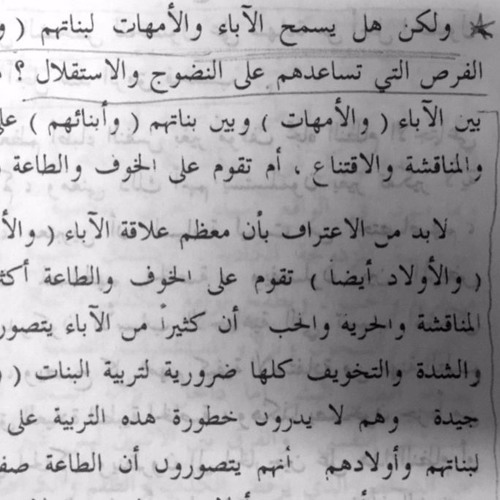 ولكن هل يسمح الآباء والأمهات لبناتهم ( و
الفرص التي تساعدهم على النضوج والاستقلال ؟
بين الآباء ( والأمهات ) وبين بناتهم ( وأبنائهم ) على
والمناقشة والاقتناع ، أم تقوم على الخوف والطاعة و
لابد من الاعتراف بأن معظم علاقة الآباء ( والأ
( والأولاد أيضاً ) تقوم على الخوف والطاعة أكثر
المناقشة والحرية والحب أن كثيراً من الآباء يتصور
والشدة والتخويف كلها ضرورية لتربية البنات (
جيدة وهم لا يدرون خطورة هذه التربية على
لبناتهم وأولادهم أنهم يتصورون أن الطاعة صف